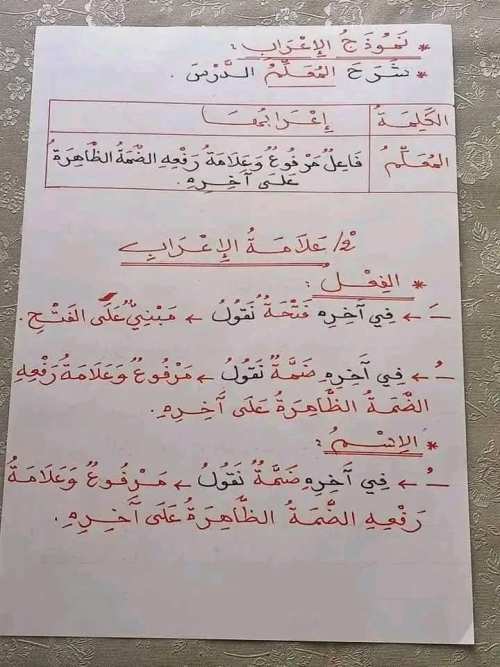 * نَمُوذَجُ الإِعْرَابِ :
* شَرَحَ المُعَلِّمُ الدَّرْسَ .
الكَلِمَةُ إِعْرَابُهَا
المُعَلِّمُ فَاعِلٌ مَرْفُوعٌ وَعَلَامَةُ رَفْعِهِ الضَّمَّةُ الظَّاهِرَةُ
عَلَى آخِرِهِ.
2/ عَلَامَةُ الإِعْرَابِ
* الفِعْلُ :
ـَ ← فِي آخِرِهِ فَتْحَةٌ نَقُولُ ← مَبْنِيٌّ عَلَى الفَتْحِ.
ـُ ← فِي آخِرِهِ ضَمَّةٌ نَقُولُ ← مَرْفُوعٌ وَعَلَامَةُ رَفْعِهِ
الضَّمَّةُ الظَّاهِرَةُ عَلَى آخِرِهِ.
* الاِسْمُ :
ـُ ← فِي آخِرِهِ ضَمَّةٌ نَقُولُ ← مَرْفُوعٌ وَعَلَامَةُ
رَفْعِهِ الضَّمَّةُ الظَّاهِرَةُ عَلَى آخِرِهِ.